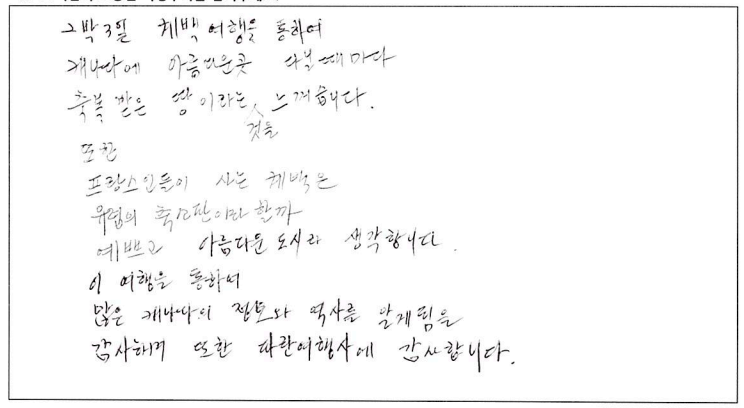 2박3일 퀘백 여행을 통하여
캐나다에 아름다운곳 다닐때마다
축복 받은 땅이라는 것을 느꼈습니다.
또한
프랑스인들이 사는 퀘백은
유럽의 축소판이라 할까
예쁘고 아름다운 도시라 생각합니다.
이 여행을 통하여
많은 캐나다의 정보와 역사를 알게됨을
감사하며 또한 파란여행사에 감사합니다.